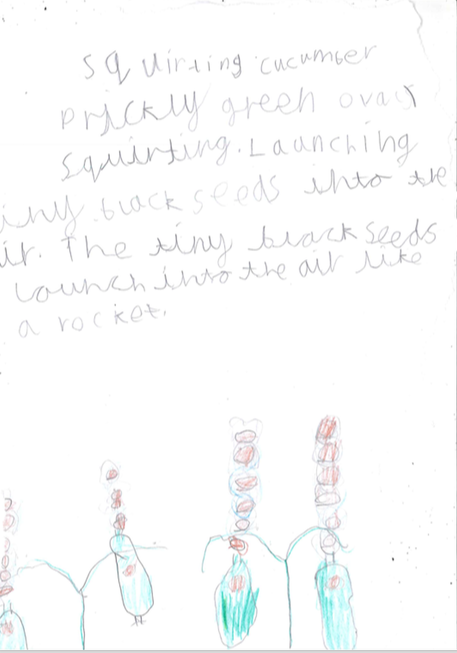 squirting cucumber
prickly green oval
squirting. Launching
iny black seeds into the
ir. The tiny black seeds
Launch into the air like
a rocket.